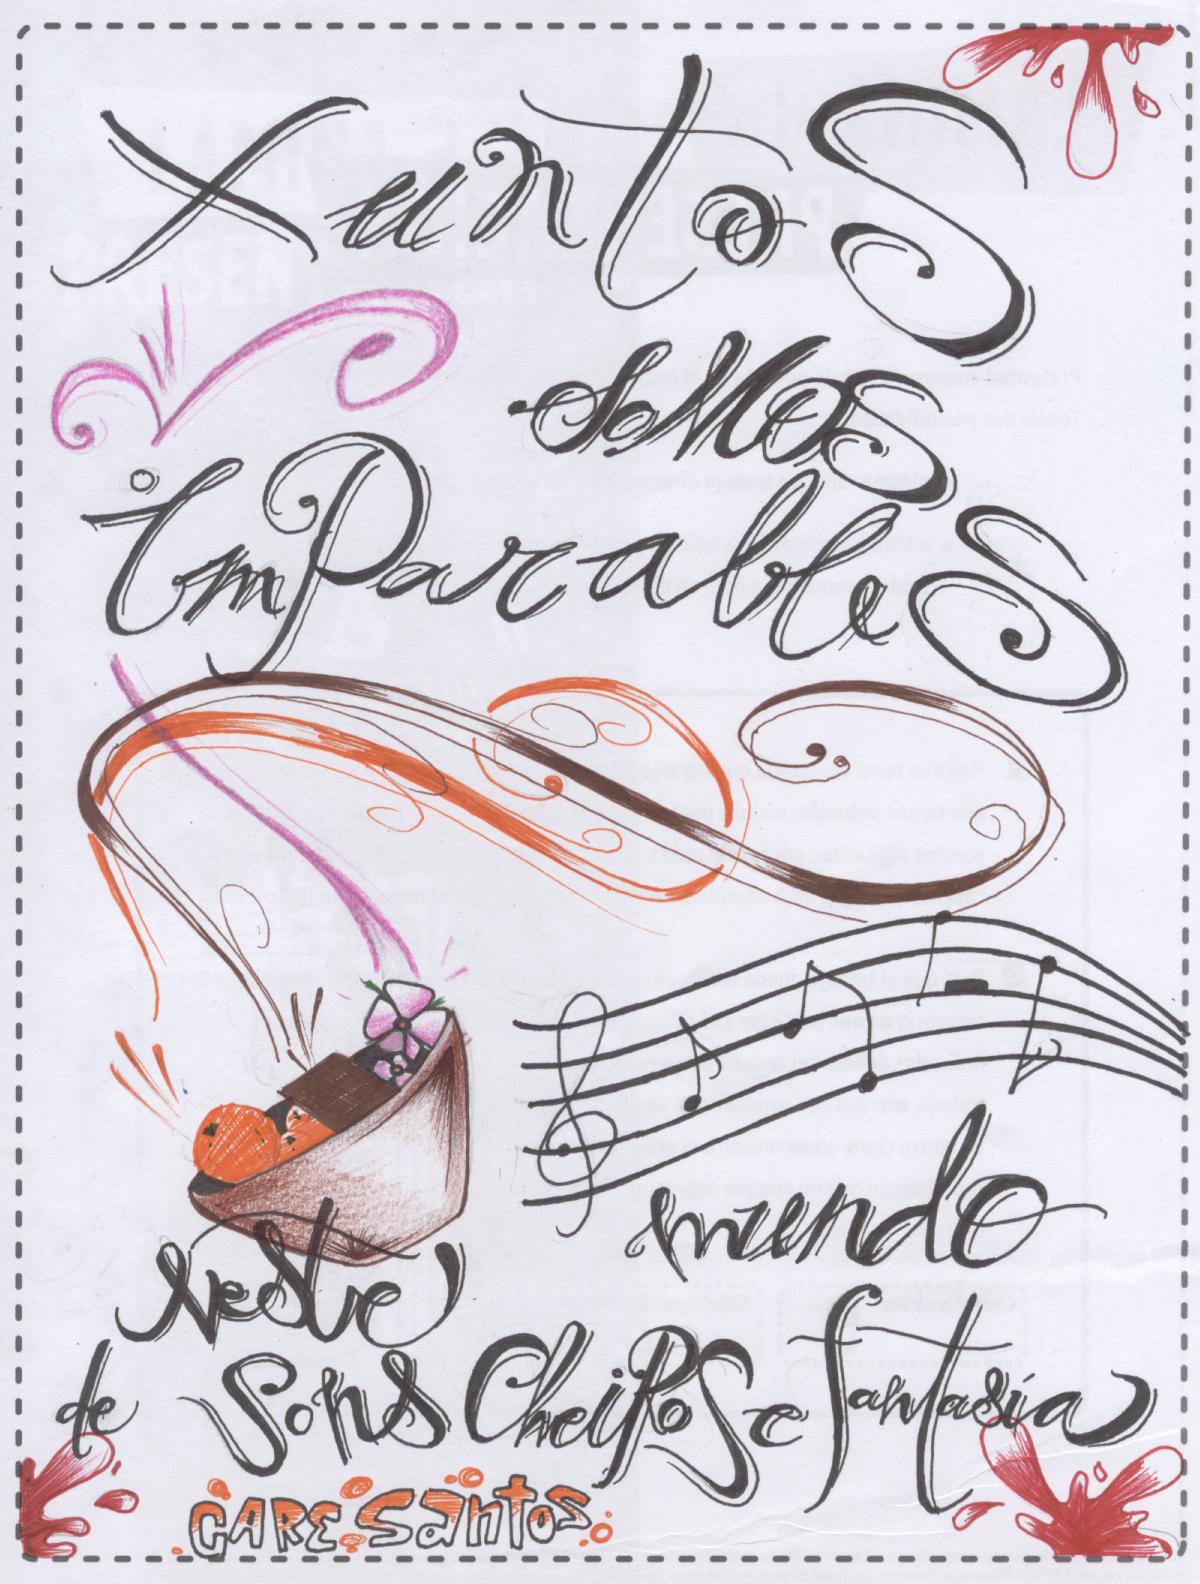 Xuntos
somos
imParables
neste
mundo
de Sons CheiRos e fantasía
CARE Santos